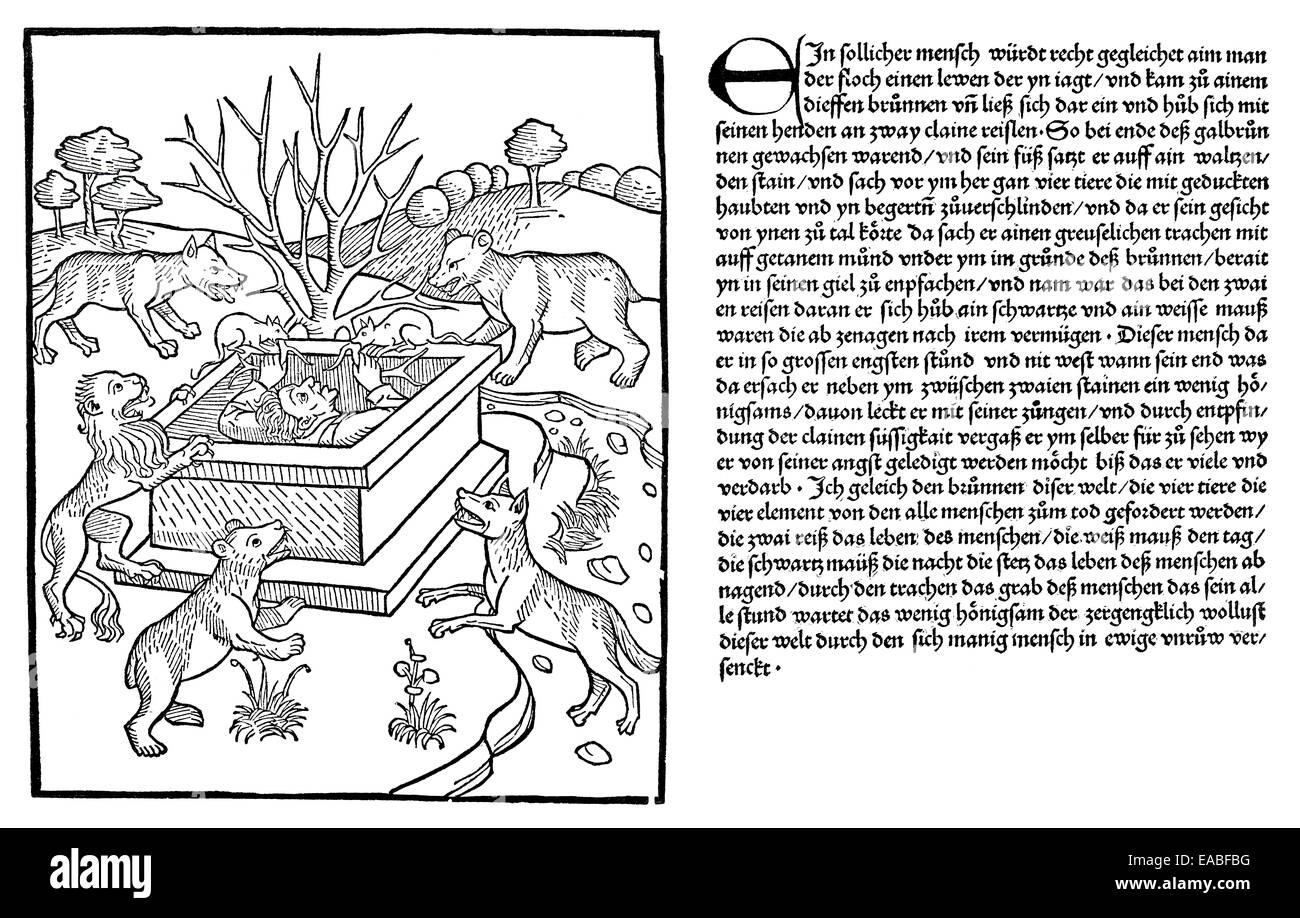 EIn sollicher mensch würdt recht gegleichet aim man
der floch einen lewen der yn iagt/vnd kam zů ainem
dieffen brůnnen vn̄ ließ sich dar ein vnd hůb sich mit
seinen henden an zway claine reislen· So bei ende deß galbrůn
nen gewachsen warend/vnd sein füß satzt er auff ain waltzen/
den stain/vnd sach vor ym her gan vier tiere die mit geduckten
haubten vnd yn begertn̄ zůuerschlinden/vnd da er sein gesicht
von ynen zů tal körte da sach er ainen greuselichen trachen mit
auff getanem můnd vnder ym im grůnde deß brůnnen/berait
yn in seinen giel zů enpfachen/vnd nam war das bei den zwai
en reisen daran er sich hůb ain schwartze vnd ain weisse mauß
waren die ab zenagen nach irem vermügen· Dieser mensch da
er in so grossen engsten stůnd vnd nit west wann sein end was
da ersach er neben ym zwüschen zwaien stainen ein wenig hö/
nigsams/dauon leckt er mit seiner zůngen/vnd durch entpfin/
dung der clainen süssigkait vergaß er ym selber für zů sehen wy
er von seiner angst geledigt werden möcht biß das er viele vnd
verdarb· Ich geleich den brůnnen diser welt/die vier tiere die
vier element von den alle menschen zům tod gefordert werden/
die zwai reiß das leben des menschen/die weiß mauß den tag/
die schwartz mauß die nacht die stetz das leben deß menschen ab
nagend/durch den trachen das grab deß menschen das sein al/
le stund wartet das wenig hönigsam der zergengklich wollust
dieser welt durch den sich manig mensch in ewige vnrůw ver/
senckt·
alamy
Image ID: EABFBG
www.alamy.com